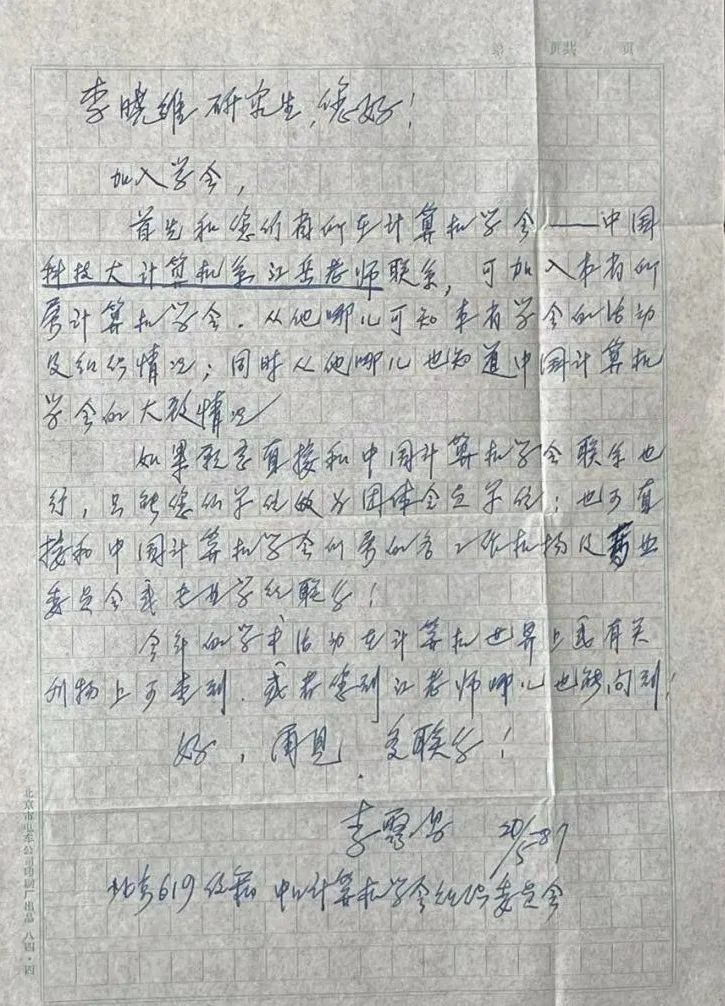 第 页共 页
李晓维研究生,您好!
加入学会,
首先和您们省所在计算机学会——中国
科技大计算机系江岳老师联系,可加入本省所
属计算机学会.从他哪儿可知本省学会的活动
及组织情况;同时从他哪儿也知道中国计算机
学会的大致情况
如果愿意直接和中国计算机学会联系也
行,只能您们学位做为团体会立学位;也可直
接和中国计算机学会所属的各工作机构及专业
委员会或专业学组联系!
今年的学术活动在计算机世界上或有关
刊物上可查到.或者您到江老师哪儿也能问到!
好,再见,多联系!
李 20/5-87
北京619信箱 中国计算机学会组织委员会
北京市电车公司印刷厂出品 八四·四